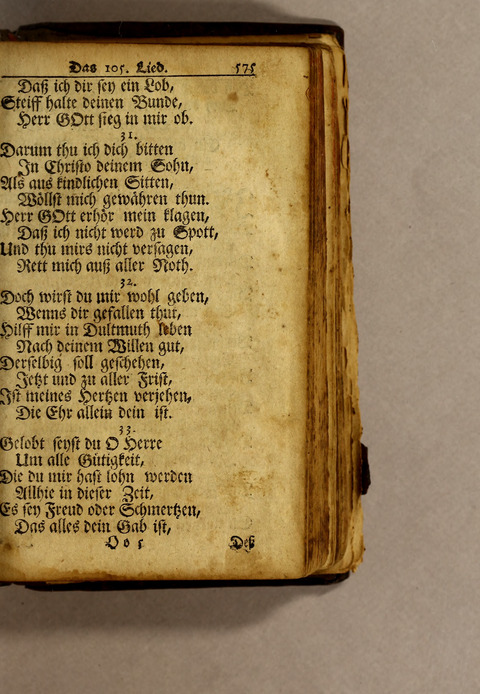 Das 105. Lied. 575
Daß ich dir sey ein Lob,
Steiff halte deinen Bunde,
Herr GOtt sieg in mir ob.
31.
Darum thu ich dich bitten
In Christo deinem Sohn,
Als aus kindlichen Sitten,
Wöllst mich gewähren thun.
Herr GOtt erhör mein klagen,
Daß ich nicht werd zu Spott,
Und thu mirs nicht versagen,
Rett mich auß aller Noth.
32.
Doch wirst du mir wohl geben,
Wenns dir gefallen thut,
Hilff mir in Dultmuth leben
Nach deinem Willen gut,
Derselbig soll geschehen,
Jetzt und zu aller Frist,
Ist meines Hertzen verjehen,
Die Ehr allein dein ist.
33.
Gelobt seyst du O Herre
Um alle Gütigkeit,
Die du mir hast lohn werden
Allhie in dieser Zeit,
Es sey Freud oder Schmertzen,
Das alles dein Gab ist,
O o 5 Deß